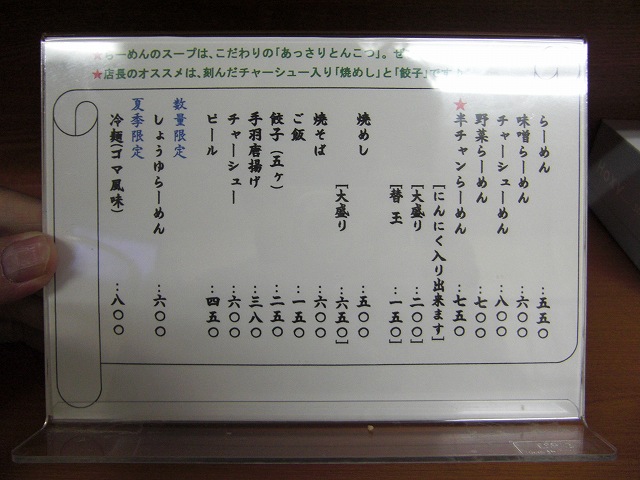 ★らーめんのスープは、こだわりの「あっさりとんこつ」。ぜ
★店長のオススメは、刻んだチャーシュー入り「焼めし」と「餃子」です
らーめん …五五〇
味噌らーめん …六〇〇
チャーシューめん …八〇〇
野菜らーめん …七〇〇
★半チャンらーめん …七五〇
[にんにく入り出来ます]
[大盛り …二〇〇]
[替 玉 …一五〇]
焼めし …五〇〇
[大盛り …六五〇]
焼そば …六〇〇
ご飯 …一五〇
餃子(五ヶ) …二五〇
手羽唐揚げ …三八〇
チャーシュー …六〇〇
ビール …四五〇
数量限定
しょうゆらーめん …六〇〇
夏季限定
冷麺(ゴマ風味) …八〇〇